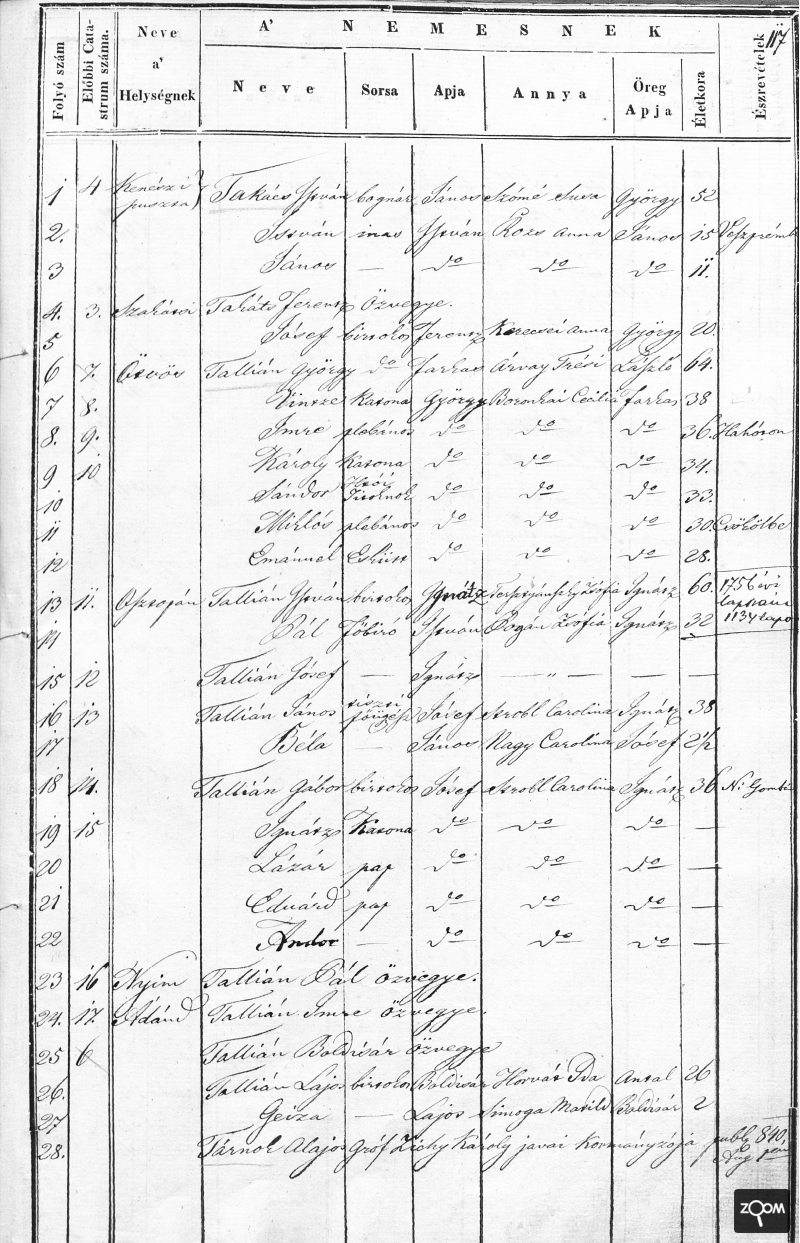 117
Folyó szám | Előbbi Catastrum száma. | Neve a' Helységnek | A' NEMESNEK | Észrevételek
Neve | Sorsa | Apja | Annya | Öreg Apja | Életkora
1 4 Kenészi puszta Takács István bognár János György 52
2. István inas István Rozs Anna János 15 Veszprémb
3 János — do do do 11.
4. 3. Szakácsi Takáts Ferensz özvegye.
5 Jósef birtokos Ferensz Kerecsei Anna György 20.
6 7. Ötvös Tallián György do Farkas Árvay Trési László 64.
7 8. Vintze Katona György Boronkai Cecilia Farkas 38
8. 9. Imre plebános do do do 36. Hahóton
9 10 Károly Katona do do do 34.
10 Sándor do do do 33.
11 Miklós plebános do do do 30. Csökölbe
12 Emánuel Eskütt do do do 28.
13 11. Osztopán Tallián István birtokos Ignátz Zsófia Ignátz 60. 1756 évi
14 Pál Főbiró István Bogár Zsófia Ignátz 32 1134 lapo
15 12 Tallián Jósef — Ignátz — „ — — —
16 13 Tallián János tiszti főügyész Jósef Strobl Carolina Ignátz 38
17 Béla — János Nagy Carolina Jósef 2½
18 14. Tallián Gábor birtokos Jósef Strobl Carolina Ignátz 36 N: Gomb
19 15 Ignátz Katona do do do —
20 Lázár pap do do do —
21 Eduárd pap do do do —
22 Andor — do do do —
23 16 Nyim Tallián Pál özvegye.
24. 17. Ádánd Tallián Imre özvegye.
25 6 Tallián Boldisár özvegye
26. Tallián Lajos birtokos Boldisár Horvát Ida Antal 26
27 Geiza — Lajos Simoga Matild Boldisár 2
28. Tárnok Alajos Gróf Zichy Károly javai Kormányzója publ 840. Aug
ZOOM